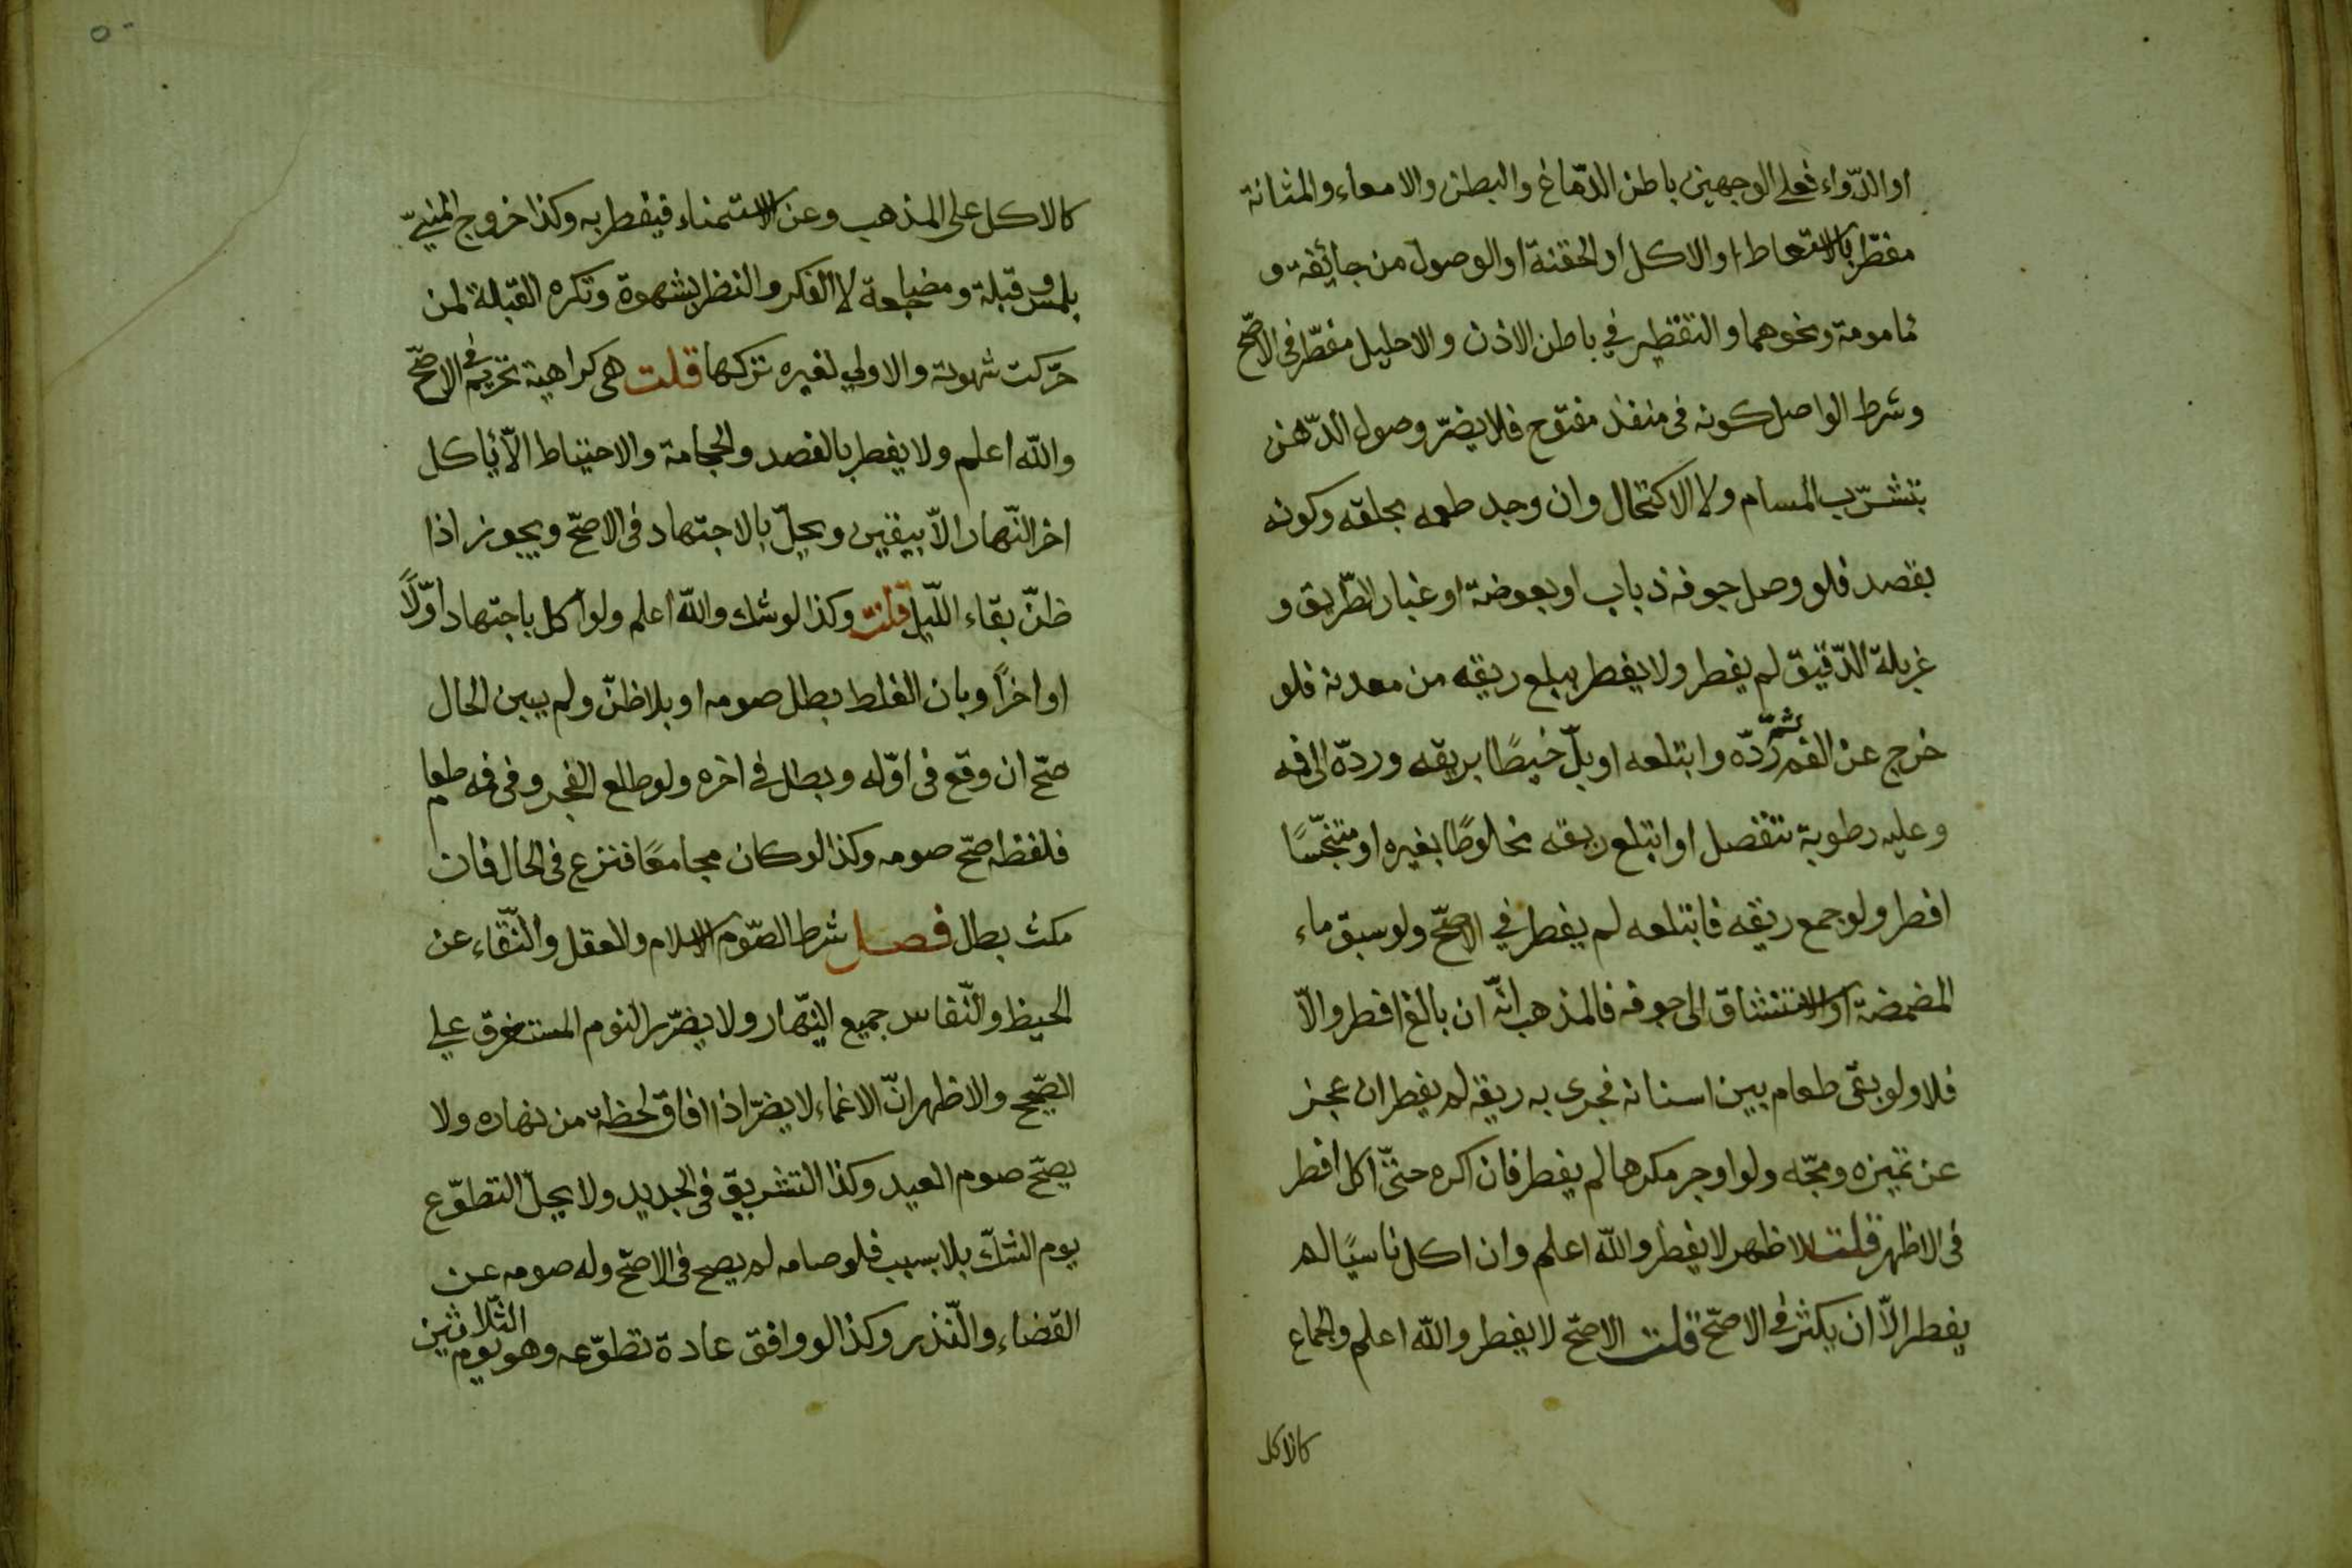 او الدّواء فعلي الوجهين باطن الدّماغ والبطن والامعاء والمثانة
مفطّر بالاستعاط او الاكل او الحقنة او الوصول من جائفة و
مامومة ونحوهما والتقطير في باطن الاذن والاحليل مفطّر فى الاصحّ
وشرط الواصل كونه فى منفذ مفتوح فلا يضرّ وصول الدّهن
بتشرّب المسام ولا الاكتحال وان وجد طعمه بحلقه وكونه
بقصد فلو وصل جوفه ذباب او بعوضة او غبار الطّريق و
غربلة الدّقيق لم يفطر ولا يفطر ببلع ريقه من معدنه فلو
خرج عن الفم ثمّ ردّه وابتلعه او بلّ خيطًا بريقه وردّه الى فمه
وعليه رطوبة تنفصل او ابتلع ريقه مخلوطًا بغيره او متنجّسًا
افطر ولو جمع ريقه فابتلعه لم يفطر في الاصحّ ولو سبق ماء
المضمضة او الاستنشاق الى جوفه فالمذهب انّه ان بالغ افطر والّا
فلا ولو بقى طعام بين اسنانه فجرى به ريقه لم يفطر ان عجز
عن تميزه ومجّه ولو اوجر مكرها لم يفطر فان اكره حتّى اكل افطر
فى الاظهر قلت الاظهر لا يفطر والله اعلم وان اكل ناسيًا لم
يفطر الّا ان يكثر في الاصحّ قلت الاصحّ لا يفطر والله اعلم والجماع
كالاكل
كالاكل على المذهب وعن الاستمناء فيفطر به وكذا خروج المنيّ
بلمس وقبلة ومضاجعة لا الفكر والنظر بشهوة وتكره القبلة لمن
حرّكت شهوته والاولي لغيره تركها قلت هى كراهية تحريم في الاصحّ
والله اعلم ولا يفطر بالفصد والحجامة والاحتياط الّا ياكل
اخر النّهار الّا بيقين ويحلّ بالاجتهاد فى الاصحّ ويجوز اذا
ظنّ بقاء اللّيل قلت وكذا لو شك والله اعلم ولو اكل باجتهاد اوّلًا
او اخرًا وبان الغلط بطل صومه او بلا ظنّ ولم يبين الحال
صحّ ان وقع فى اوّله وبطل في اخره ولو طلع الفجر وفى فمه طعام
فلفظه صحّ صومه وكذا لو كان مجامعًا فنزع فى الحال فان
مكث بطل فصل شرط الصّوم الاسلام والعقل والنّقاء عن
الحيظ والنّفاس جميع النّهار ولا يضرّ النوم المستغرق علي
الصّحيح والاظهر انّ الاغماء لا يضرّ اذا افاق لحظة من نهاره ولا
يصحّ صوم العيد وكذا التشريق فى الجديد ولا يحلّ التطوّع
يوم الشكّ بلا سبب فلو صامه لم يصح فى الاصحّ وله صومه عن
القضاء والنّذر وكذا لو وافق عادة تطوّعه وهو يوم الثّلاثين